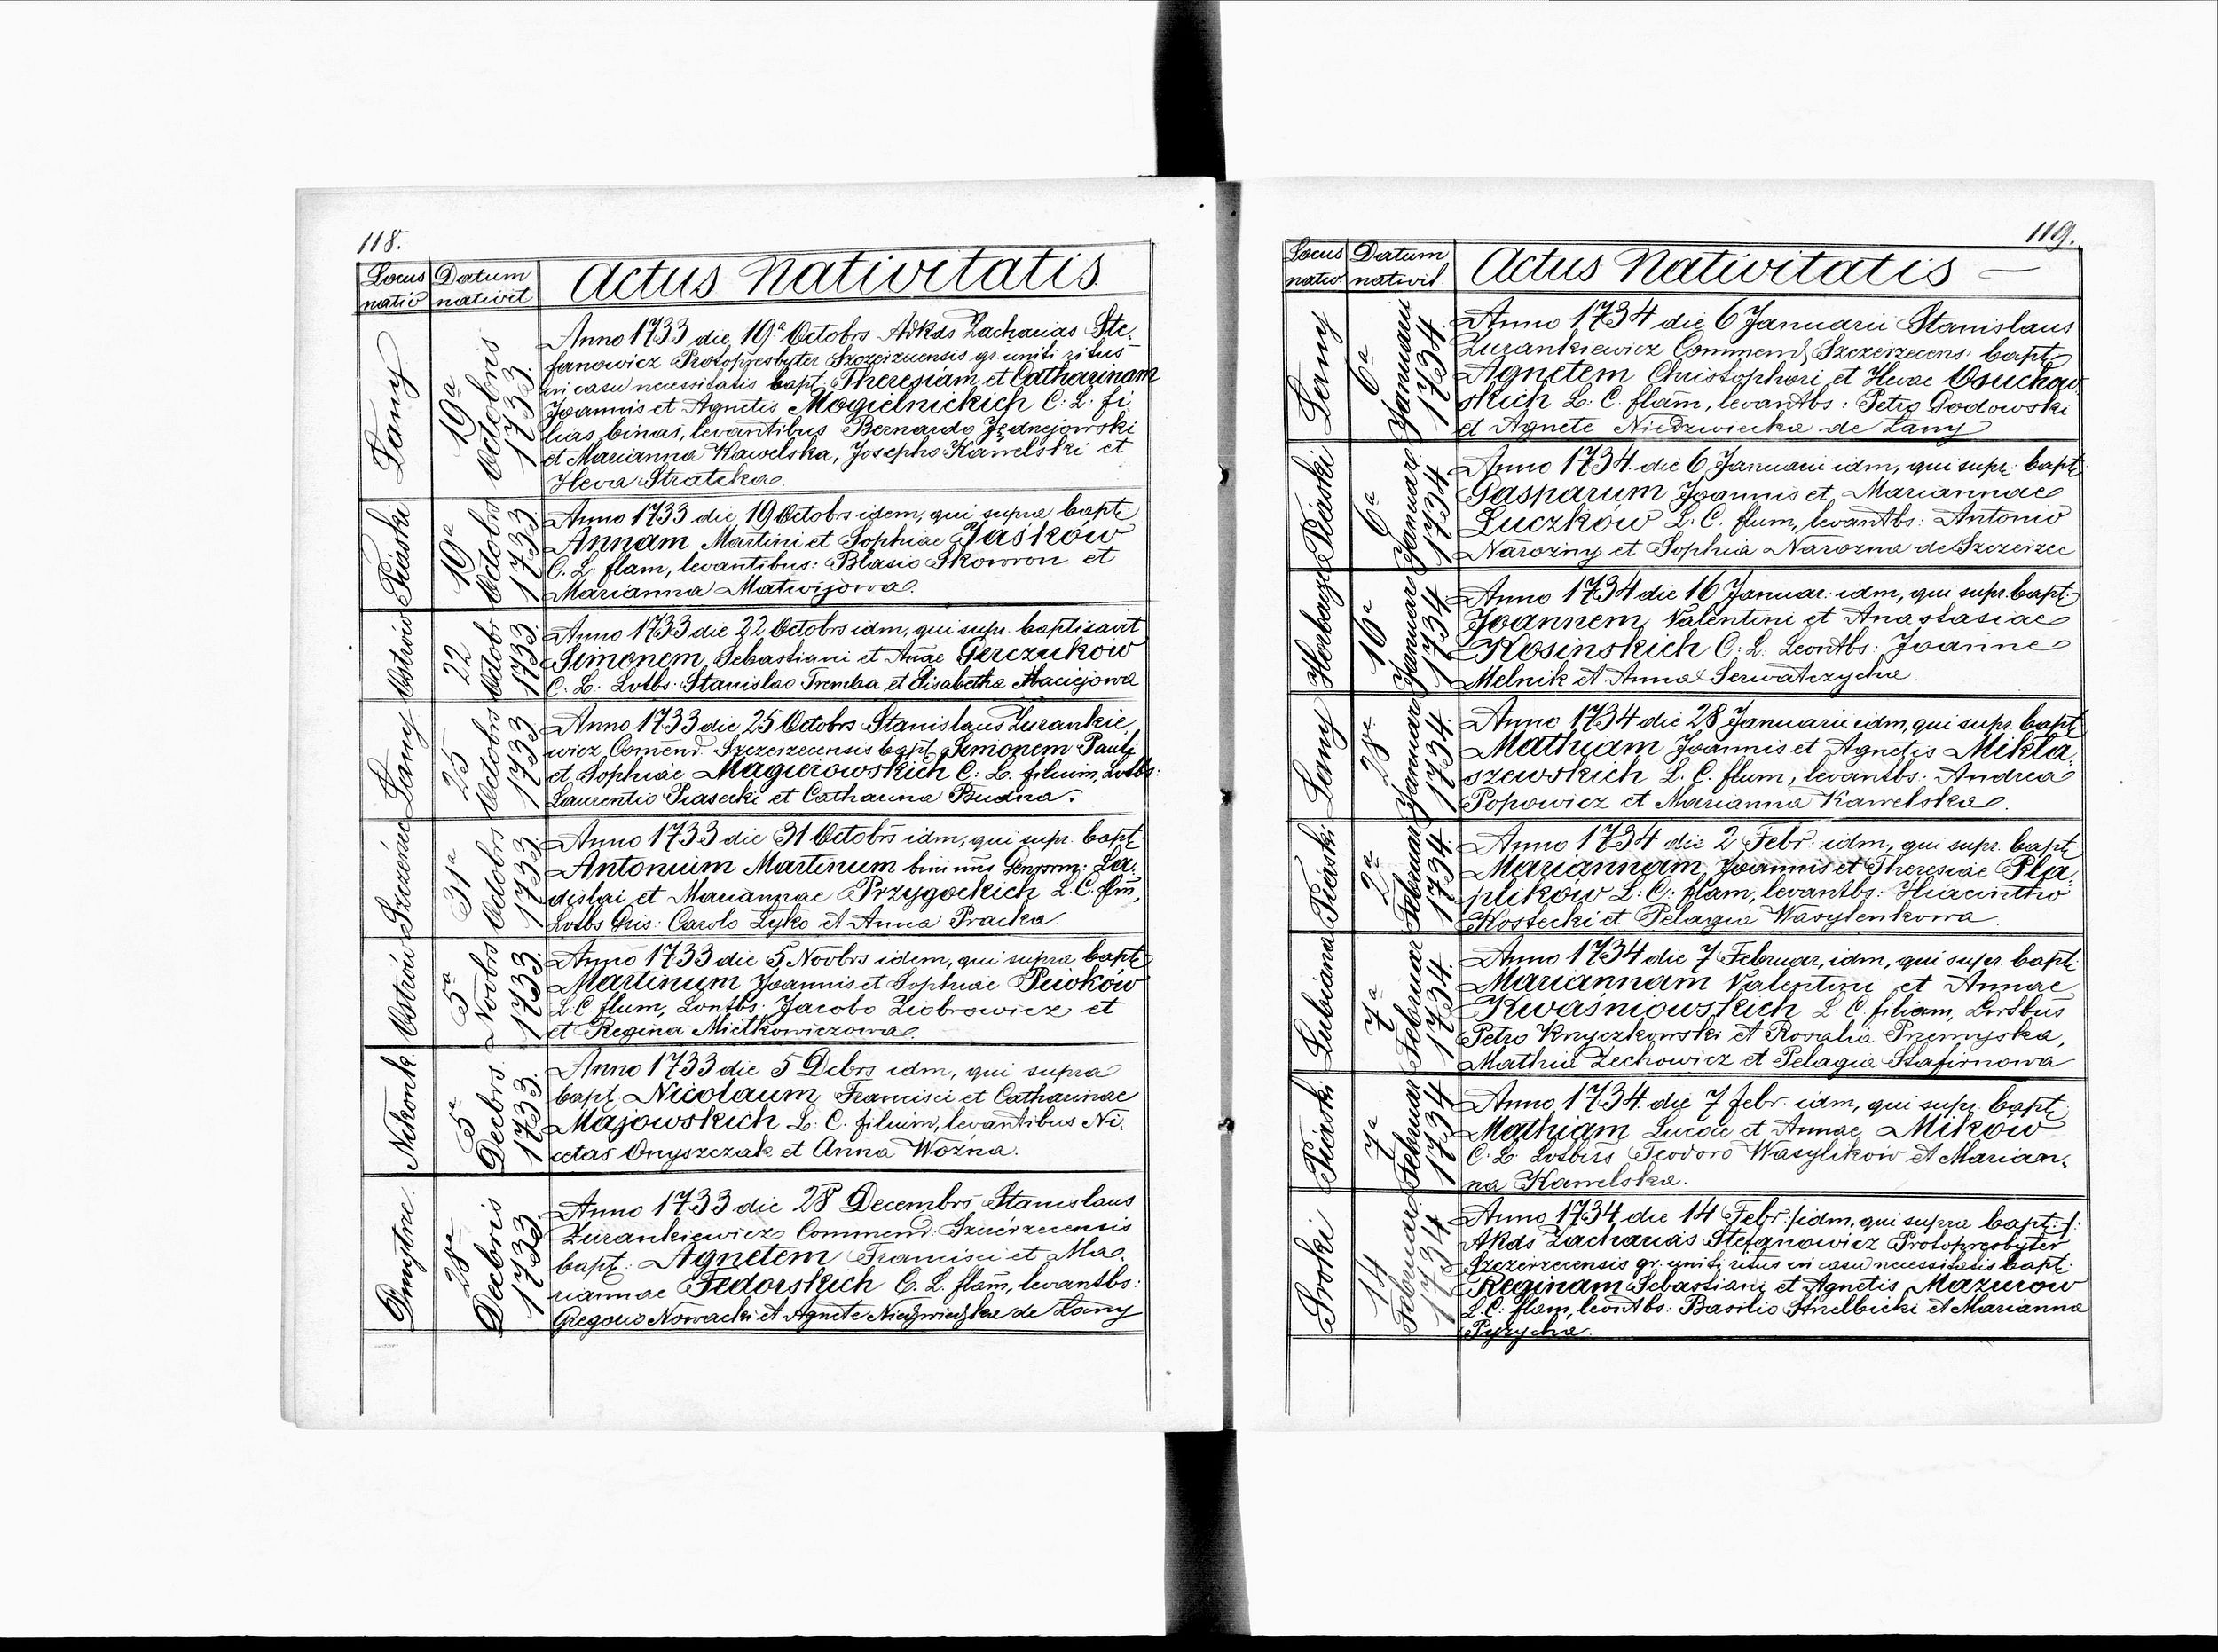 118.
Locus natio
Datum nativit
Actus Nativitatis
Łany
19a Octobris 1733.
Anno 1733 die 19a Octobrs Adkds Zacharias Ste-
fanowicz Protopresbyter Szczerzecensis gr. uniti ritus
in casu necessitatis bapt: Theresiam et Catharinam
Joannis et Agnetis Mogielnickich C: L: fi
lias binas, levantibus Bernardo Jędrzejowski
et Marianna Kawelska, Josepho Kawelski et
Heva Stratcka.
Piaski
19a Octobrs 1733
Anno 1733 die 19 Octobrs idem, qui supra bapt:
Annam Martini et Sophiae Jaśków
C. L. flam, levantibus: Blasio Skowron et
Marianna Matwijowa.
Ostrów
22 Octobr 1733.
Anno 1733 die 22 Octobrs idm, qui supr. baptisavit
Simonem Sebastiani et Anae Gerczuków
C. L. Lvtbs: Stanislao Tremba et Elisabetha Maciejowa
Łany
25 Octobrs 1733
Anno 1733 die 25 Octobrs Stanislaus Żurankie
wicz Comend. Szczerzecensis bapt. Simonem Pauli
et Sophiae Magierowskich C: L. filium, Lvtbs:
Laurentio Piasecki et Catharina Budna.
Szczerzec
31a Octobrs 1733.
Anno 1733 die 31 Octobrs idm, qui supr. bapt.
Antonium Martinum bini nms Genrorm: La-
dislai et Mariannae Przygockich L. C. flm,
Lvtbs Gsis: Carolo Łyko et Anna Pracka.
Ostrów
5a Novbrs 1733
Anno 1733 die 5 Novbrs idem, qui supra bapt.
Martinum Joannis et Sophiae Piwków
L C. flum, Lontbs: Jacobo Ziobrowicz et
et Regina Mietkowiczowa.
Nikonk.
5a Decbrs. 1733.
Anno 1733 die 5 Dcbrs idm, qui supra
bapt. Nicolaum Francisci et Catharinae
Majowskich L. C. filium, levantibus Ni-
cetas Onyszczak et Anna Woźna.
Dmytre
28a Decbris 1733
Anno 1733 die 28 Decembrs Stanislaus
Żurankiewicz Commend. Szczerzecensis
bapt: Agnetem Francisci et Ma-
riannae Fedorskich C. L. flam, levantbs:
Gregorio Nowacki et Agnete Niedzwiedzka de Łany
119.
Locus nativ.
Datum nativit.
Actus Nativitatis —
Łany
6a Januarii 1734
Anno 1734 die 6 Januarii Stanislaus
Żurankiewicz Commend Szczerzecens: bapt.
Agnetem Christophori et Hevae Osuchow-
skich L. C. flam, levantbs: Petro Godowski
et Agnete Niedzwiecka de Łany
Piaski
6a Januar. 1734.
Anno 1734. die 6 Januarii idm, qui supr: bapt:
Gasparum Joannis et Mariannae
Łuczków L. C. flum, levantbs: Antonio
Narozny et Sophia Narozna de Szczerzec
Horbacze
16a Januar 1734
Anno 1734 die 16 Januar: idm, qui supr. bapt:
Joannem Valentini et Anastasiae
Kosinskich C: L. Levntbs: Joanne
Melnik et Anna Serwatczycha.
Łany
28a Januar 1734.
Anno 1734 die 28 Januarii idm, qui supr. bapt:
Mathiam Joannis et Agnetis Mikla-
szewskich L. C. flum, levantbs: Andrea
Popowicz et Marianna Kawelska.
Piaski
2a Februar 1734.
Anno 1734 die 2 Febr. idm, qui supr. bapt.
Mariannam Joannis et Theresiae Pla-
plików L. C: flam, levantbs: Hiacintho
Kostecki et Pelagia Wasylenkowa
Lubiana
7a Februar 1734.
Anno 1734 die 7 Februar, idm, qui supr. bapt:
Mariannam Valentini et Annae
Kwaśniowskich L. C. filiam, Lvtbus
Petro Knyczkowski et Rosalia Przemyska,
Mathia Lechowicz et Pelagia Stafirnowa
Piaski
7a Februar 1734
Anno 1734. die 7 febr. idm, qui supr. bapt.
Mathiam Lucae et Annae Mików
C. L. Lvtbus Teodoro Wasylików et Marian-
na Kawelska.
Sroki
14 Februar. 1734
Anno 1734 die 14 Febr. /:idm, qui supra bapt:/:
Akds Zacharias Stefanowicz Protopresbyter
Szczerzecensis gr. uniti ritus in casu necessitatis bapt:
Reginam Sebastiani et Agnetis Mazurów
L. C: flam, levntbs: Basilio Hnelbicki et Marianna
Pyrycha.